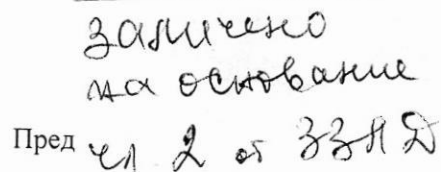 заличено
на основание
Пред чл 2 от ЗЗЛД